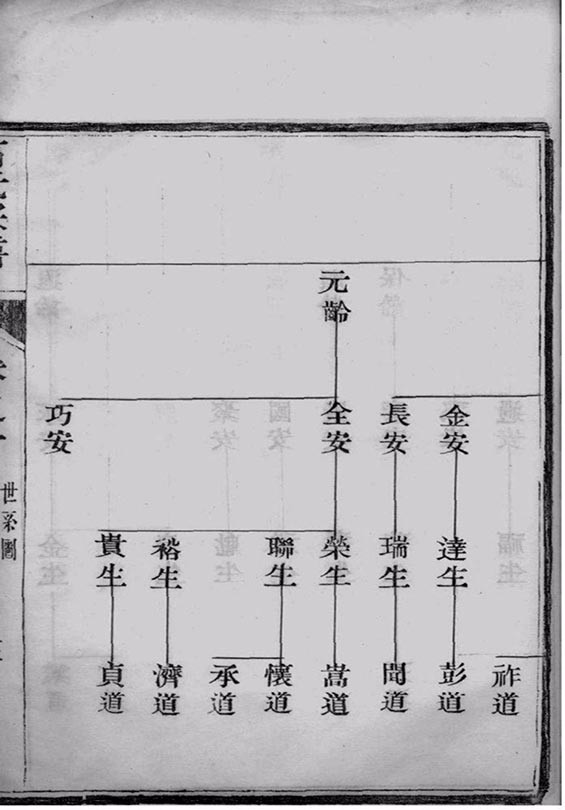 元齡
金安
長安
全安
巧安
達生
瑞生
榮生
聯生
裕生
貴生
祚道
彭道
聞道
嵩道
懷道
承道
濟道
貞道
世系圖